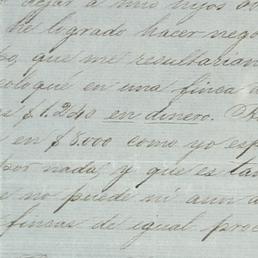 dejar á mis hijos
he logrado hacer nego
que me resultarian
coloqué en una finca
$1.240 en dinero.
en $8.000 como yo esp
por nada, y que es tan
no puede ni aun
fincas de igual proc